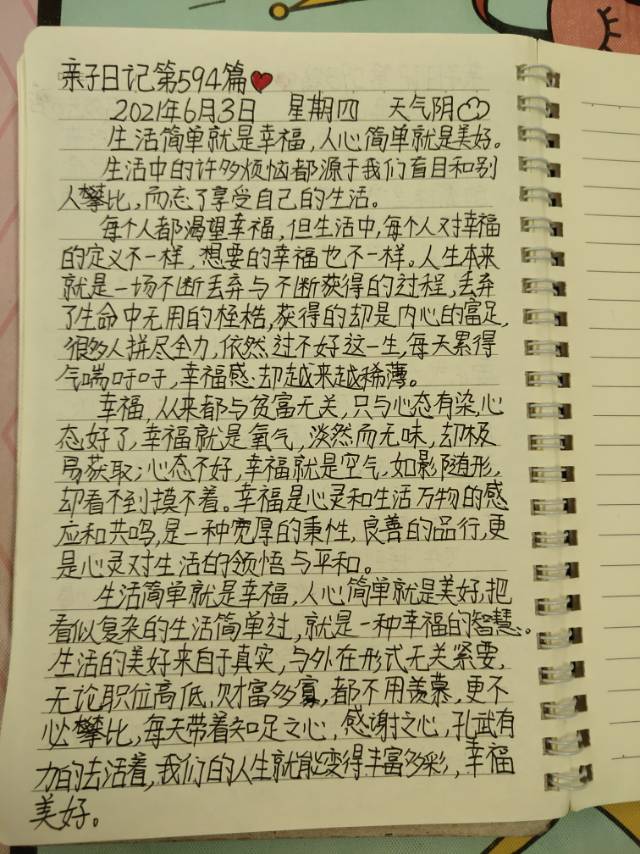 亲子日记第594篇❤
2021年6月3日 星期四 天气阴☁
生活简单就是幸福,人心简单就是美好。
生活中的许多烦恼都源于我们盲目和别
人攀比,而忘了享受自己的生活。
每个人都渴望幸福,但生活中,每个人对幸福
的定义不一样,想要的幸福也不一样。人生本来
就是一场不断丢弃与不断获得的过程,丢弃
了生命中无用的桎梏,获得的却是内心的富足,
很多人拼尽全力,依然过不好这一生,每天累得
气喘吁吁,幸福感却越来越稀薄。
幸福,从来都与贫富无关,只与心态有染,心
态好了,幸福就是氧气,淡然而无味,却极
易获取;心态不好,幸福就是空气,如影随形,
却看不到摸不着。幸福是心灵和生活万物的感
应和共鸣,是一种宽厚的秉性,良善的品行,更
是心灵对生活的领悟与平和。
生活简单就是幸福,人心简单就是美好,把
看似复杂的生活简单过,就是一种幸福的智慧。
生活的美好来自于真实,与外在形式无关紧要,
无论职位高低,财富多寡,都不用羡慕,更不
必攀比,每天带着知足之心,感谢之心,孔武有
力的去活着,我们的人生就能变得丰富多彩,幸福
美好。